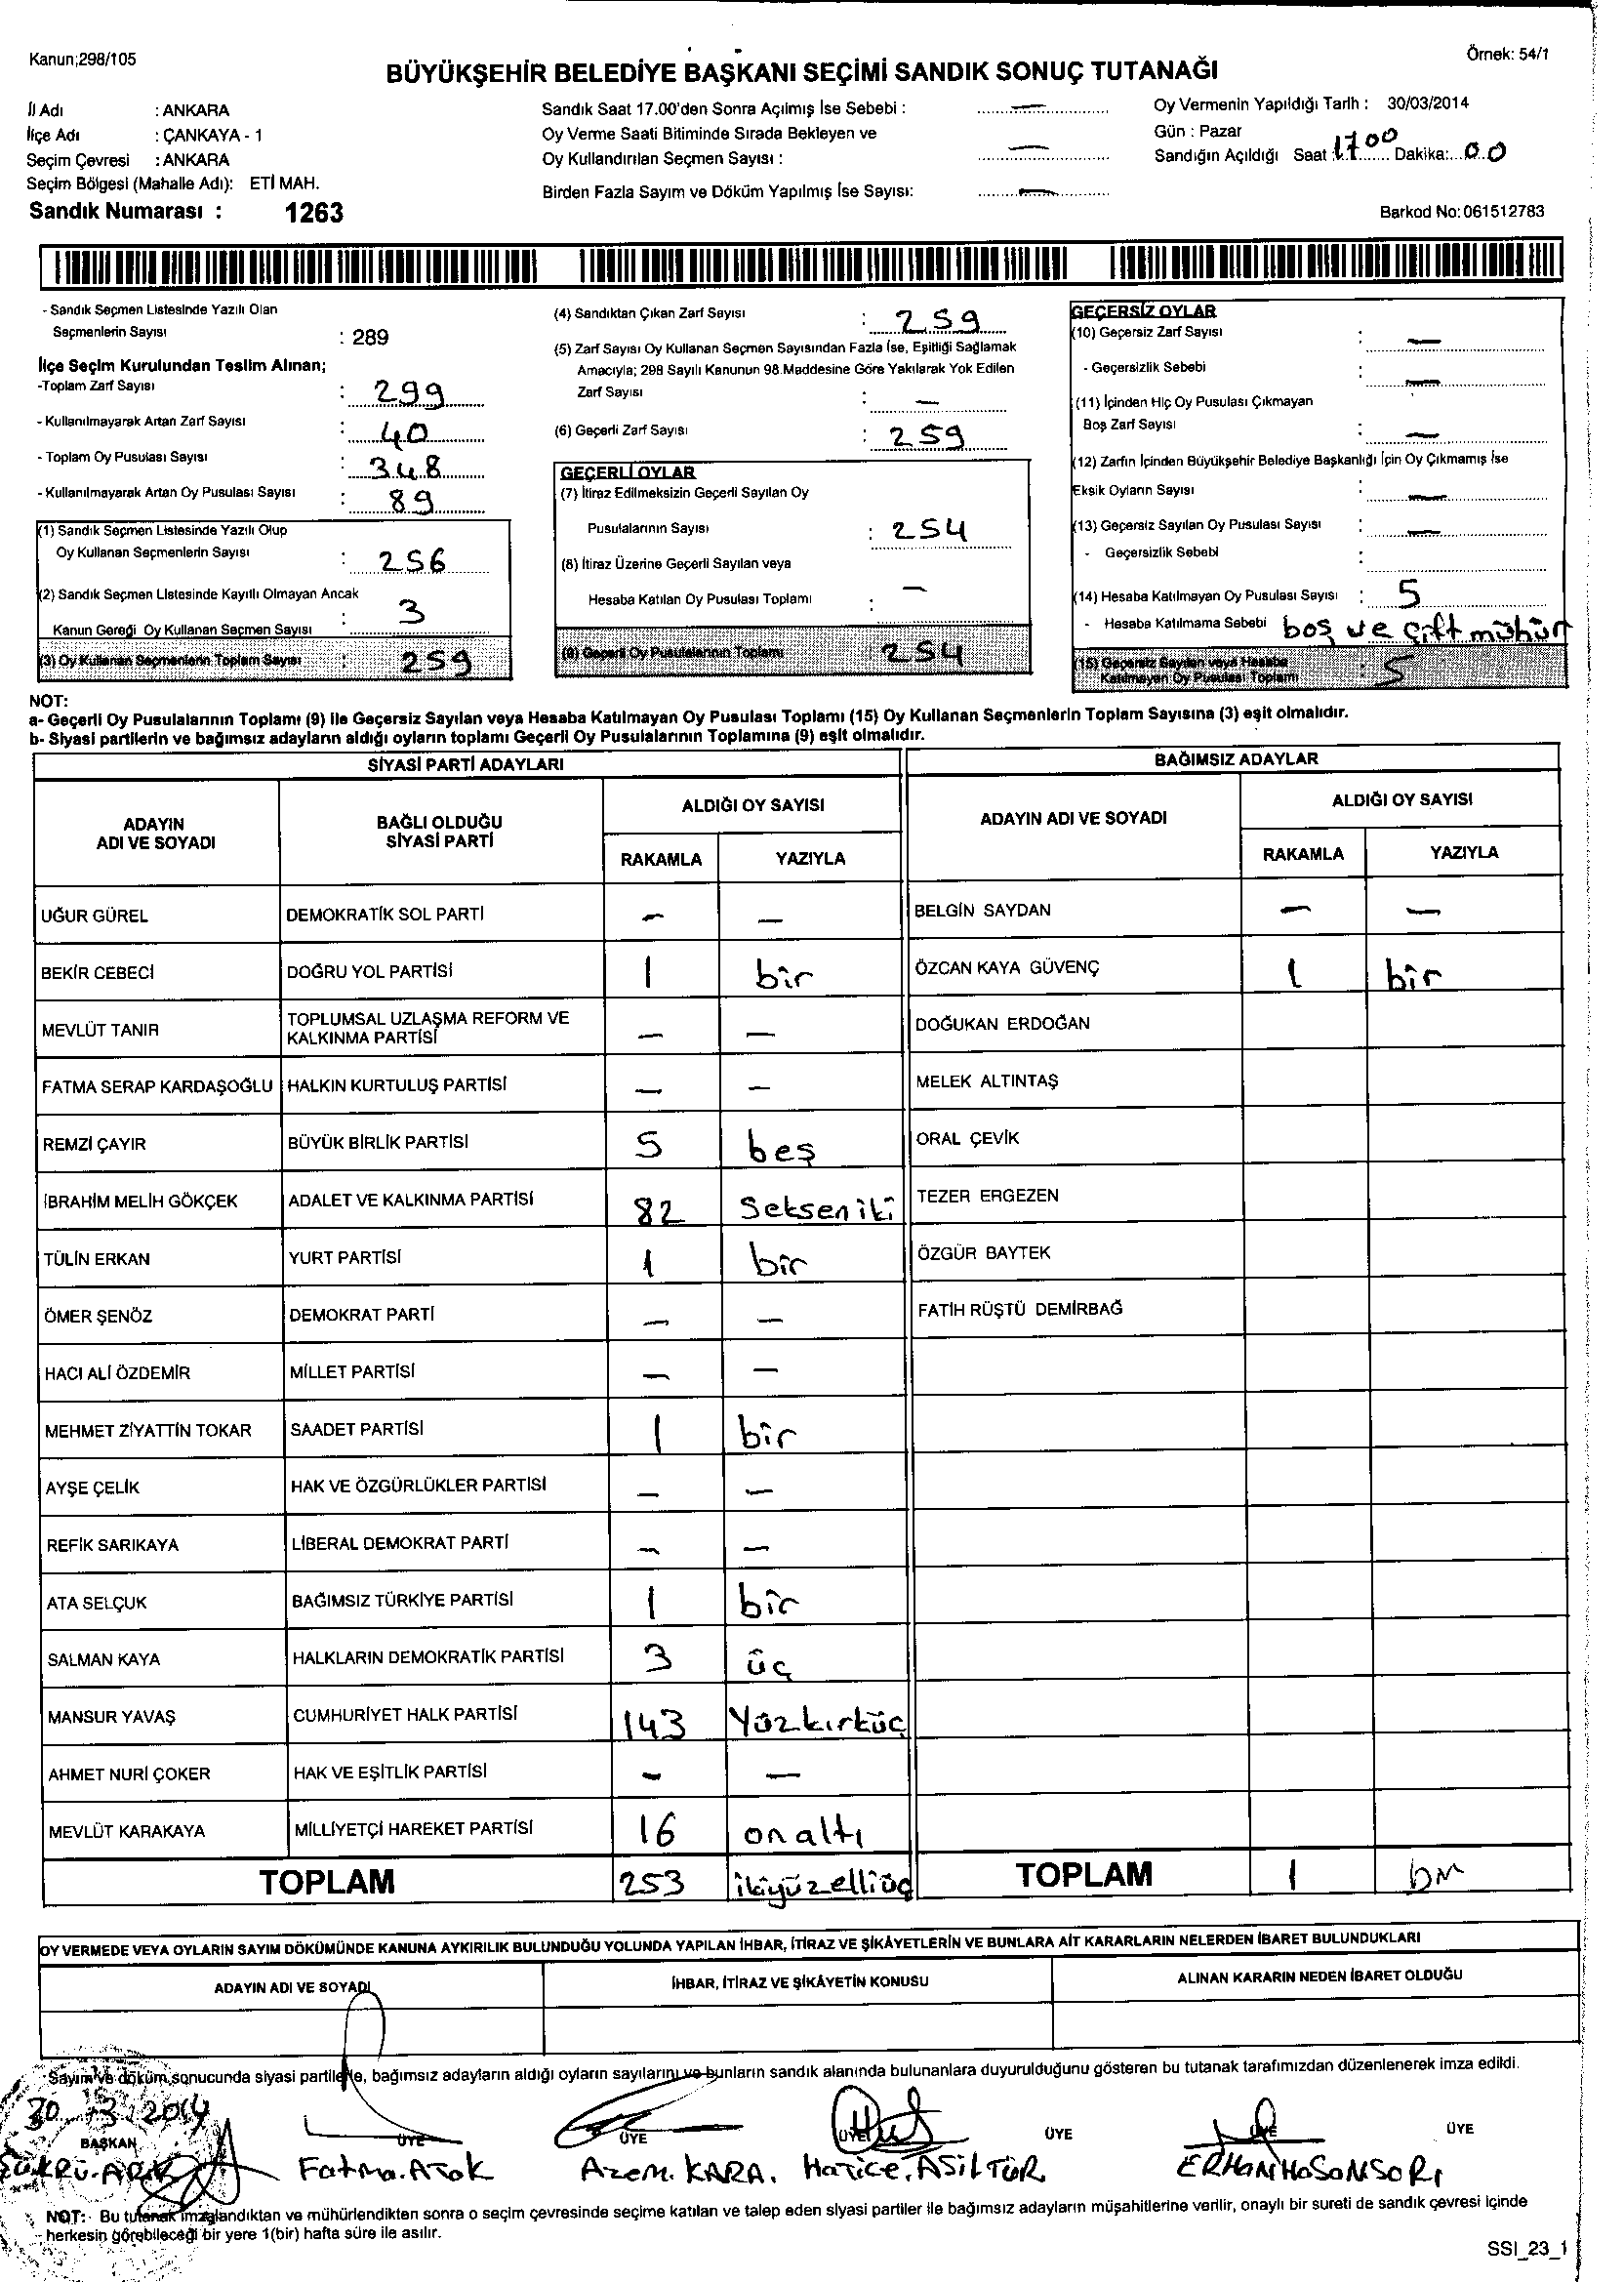 Kanun;298/105
Örnek: 54/1
BÜYÜKŞEHİR BELEDİYE BAŞKANI SEÇİMİ SANDIK SONUÇ TUTANAĞI
İl Adı : ANKARA
İlçe Adı : ÇANKAYA - 1
Seçim Çevresi : ANKARA
Seçim Bölgesi (Mahalle Adı): ETİ MAH.
Sandık Numarası : 1263
Sandık Saat 17.00'den Sonra Açılmış İse Sebebi : —
Oy Verme Saati Bitiminde Sırada Bekleyen ve
Oy Kullandırılan Seçmen Sayısı : —
Birden Fazla Sayım ve Döküm Yapılmış İse Sayısı: —
Oy Vermenin Yapıldığı Tarih : 30/03/2014
Gün : Pazar
Sandığın Açıldığı Saat : 17 00 Dakika: 00
Barkod No: 061512783
- Sandık Seçmen Listesinde Yazılı Olan
Seçmenlerin Sayısı : 289
İlçe Seçim Kurulundan Teslim Alınan;
-Toplam Zarf Sayısı : 299
- Kullanılmayarak Artan Zarf Sayısı : 40
- Toplam Oy Pusulası Sayısı : 348
- Kullanılmayarak Artan Oy Pusulası Sayısı : 89
(1) Sandık Seçmen Listesinde Yazılı Olup
Oy Kullanan Seçmenlerin Sayısı : 256
(2) Sandık Seçmen Listesinde Kayıtlı Olmayan Ancak
Kanun Gereği Oy Kullanan Seçmen Sayısı : 3
(3) Oy Kullanan Seçmenlerin Toplam Sayısı : 259
(4) Sandıktan Çıkan Zarf Sayısı : 259
(5) Zarf Sayısı Oy Kullanan Seçmen Sayısından Fazla İse, Eşitliği Sağlamak
Amacıyla; 298 Sayılı Kanunun 98.Maddesine Göre Yakılarak Yok Edilen
Zarf Sayısı : —
(6) Geçerli Zarf Sayısı : 259
GEÇERLİ OYLAR
(7) İtiraz Edilmeksizin Geçerli Sayılan Oy
Pusulalarının Sayısı : 254
(8) İtiraz Üzerine Geçerli Sayılan veya
Hesaba Katılan Oy Pusulası Toplamı : —
(9) Geçerli Oy Pusulalarının Toplamı 254
GEÇERSİZ OYLAR
(10) Geçersiz Zarf Sayısı : —
- Geçersizlik Sebebi : —
(11) İçinden Hiç Oy Pusulası Çıkmayan
Boş Zarf Sayısı : —
(12) Zarfın İçinden Büyükşehir Belediye Başkanlığı İçin Oy Çıkmamış İse
Eksik Oyların Sayısı : —
(13) Geçersiz Sayılan Oy Pusulası Sayısı : —
- Geçersizlik Sebebi :
(14) Hesaba Katılmayan Oy Pusulası Sayısı : 5
- Hesaba Katılmama Sebebi boş ve çift mühür
(15) Geçersiz Sayılan veya Hesaba
Katılmayan Oy Pusulası Toplamı : 5
NOT:
a- Geçerli Oy Pusulalarının Toplamı (9) ile Geçersiz Sayılan veya Hesaba Katılmayan Oy Pusulası Toplamı (15) Oy Kullanan Seçmenlerin Toplam Sayısına (3) eşit olmalıdır.
b- Siyasi partilerin ve bağımsız adayların aldığı oyların toplamı Geçerli Oy Pusulalarının Toplamına (9) eşit olmalıdır.
SİYASİ PARTİ ADAYLARI
ADAYIN ADI VE SOYADI
BAĞLI OLDUĞU SİYASİ PARTİ
ALDIĞI OY SAYISI
RAKAMLA YAZIYLA
UĞUR GÜREL DEMOKRATİK SOL PARTİ — —
BEKİR CEBECİ DOĞRU YOL PARTİSİ 1 bir
MEVLÜT TANIR TOPLUMSAL UZLAŞMA REFORM VE KALKINMA PARTİSİ — —
FATMA SERAP KARDAŞOĞLU HALKIN KURTULUŞ PARTİSİ — —
REMZİ ÇAYIR BÜYÜK BİRLİK PARTİSİ 5 beş
İBRAHİM MELİH GÖKÇEK ADALET VE KALKINMA PARTİSİ 82 Seksen iki
TÜLİN ERKAN YURT PARTİSİ 1 bir
ÖMER ŞENÖZ DEMOKRAT PARTİ — —
HACI ALİ ÖZDEMİR MİLLET PARTİSİ — —
MEHMET ZİYATTİN TOKAR SAADET PARTİSİ 1 bir
AYŞE ÇELİK HAK VE ÖZGÜRLÜKLER PARTİSİ — —
REFİK SARIKAYA LİBERAL DEMOKRAT PARTİ — —
ATA SELÇUK BAĞIMSIZ TÜRKİYE PARTİSİ 1 bir
SALMAN KAYA HALKLARIN DEMOKRATİK PARTİSİ 3 üç
MANSUR YAVAŞ CUMHURİYET HALK PARTİSİ 143 Yüzkırküç
AHMET NURİ ÇOKER HAK VE EŞİTLİK PARTİSİ — —
MEVLÜT KARAKAYA MİLLİYETÇİ HAREKET PARTİSİ 16 onaltı
TOPLAM 253 ikiyüzelliüç
BAĞIMSIZ ADAYLAR
ADAYIN ADI VE SOYADI
ALDIĞI OY SAYISI
RAKAMLA YAZIYLA
BELGİN SAYDAN — —
ÖZCAN KAYA GÜVENÇ 1 bir
DOĞUKAN ERDOĞAN
MELEK ALTINTAŞ
ORAL ÇEVİK
TEZER ERGEZEN
ÖZGÜR BAYTEK
FATİH RÜŞTÜ DEMİRBAĞ
TOPLAM 1 bir
OY VERMEDE VEYA OYLARIN SAYIM DÖKÜMÜNDE KANUNA AYKIRILIK BULUNDUĞU YOLUNDA YAPILAN İHBAR, İTİRAZ VE ŞİKÂYETLERİN VE BUNLARA AİT KARARLARIN NELERDEN İBARET BULUNDUKLARI
ADAYIN ADI VE SOYADI İHBAR, İTİRAZ VE ŞİKÂYETİN KONUSU ALINAN KARARIN NEDEN İBARET OLDUĞU
Sayım ve döküm sonucunda siyasi partilerle, bağımsız adayların aldığı oyların sayılarını ve bunların sandık alanında bulunanlara duyurulduğunu gösteren bu tutanak tarafımızdan düzenlenerek imza edildi.
30 - 3 - 2014
BAŞKAN ÜYE ÜYE ÜYE ÜYE ÜYE ÜYE
ŞÜKRÜ. ARIK Fatma. Atok Azem. KARA. Hatice. ASİLTÜR ERHAN HOSONSORI
NOT:- Bu tutanak imzalandıktan ve mühürlendikten sonra o seçim çevresinde seçime katılan ve talep eden siyasi partiler ile bağımsız adayların müşahitlerine verilir, onaylı bir sureti de sandık çevresi içinde
herkesin görebileceği bir yere 1(bir) hafta süre ile asılır.
SSI_23_1